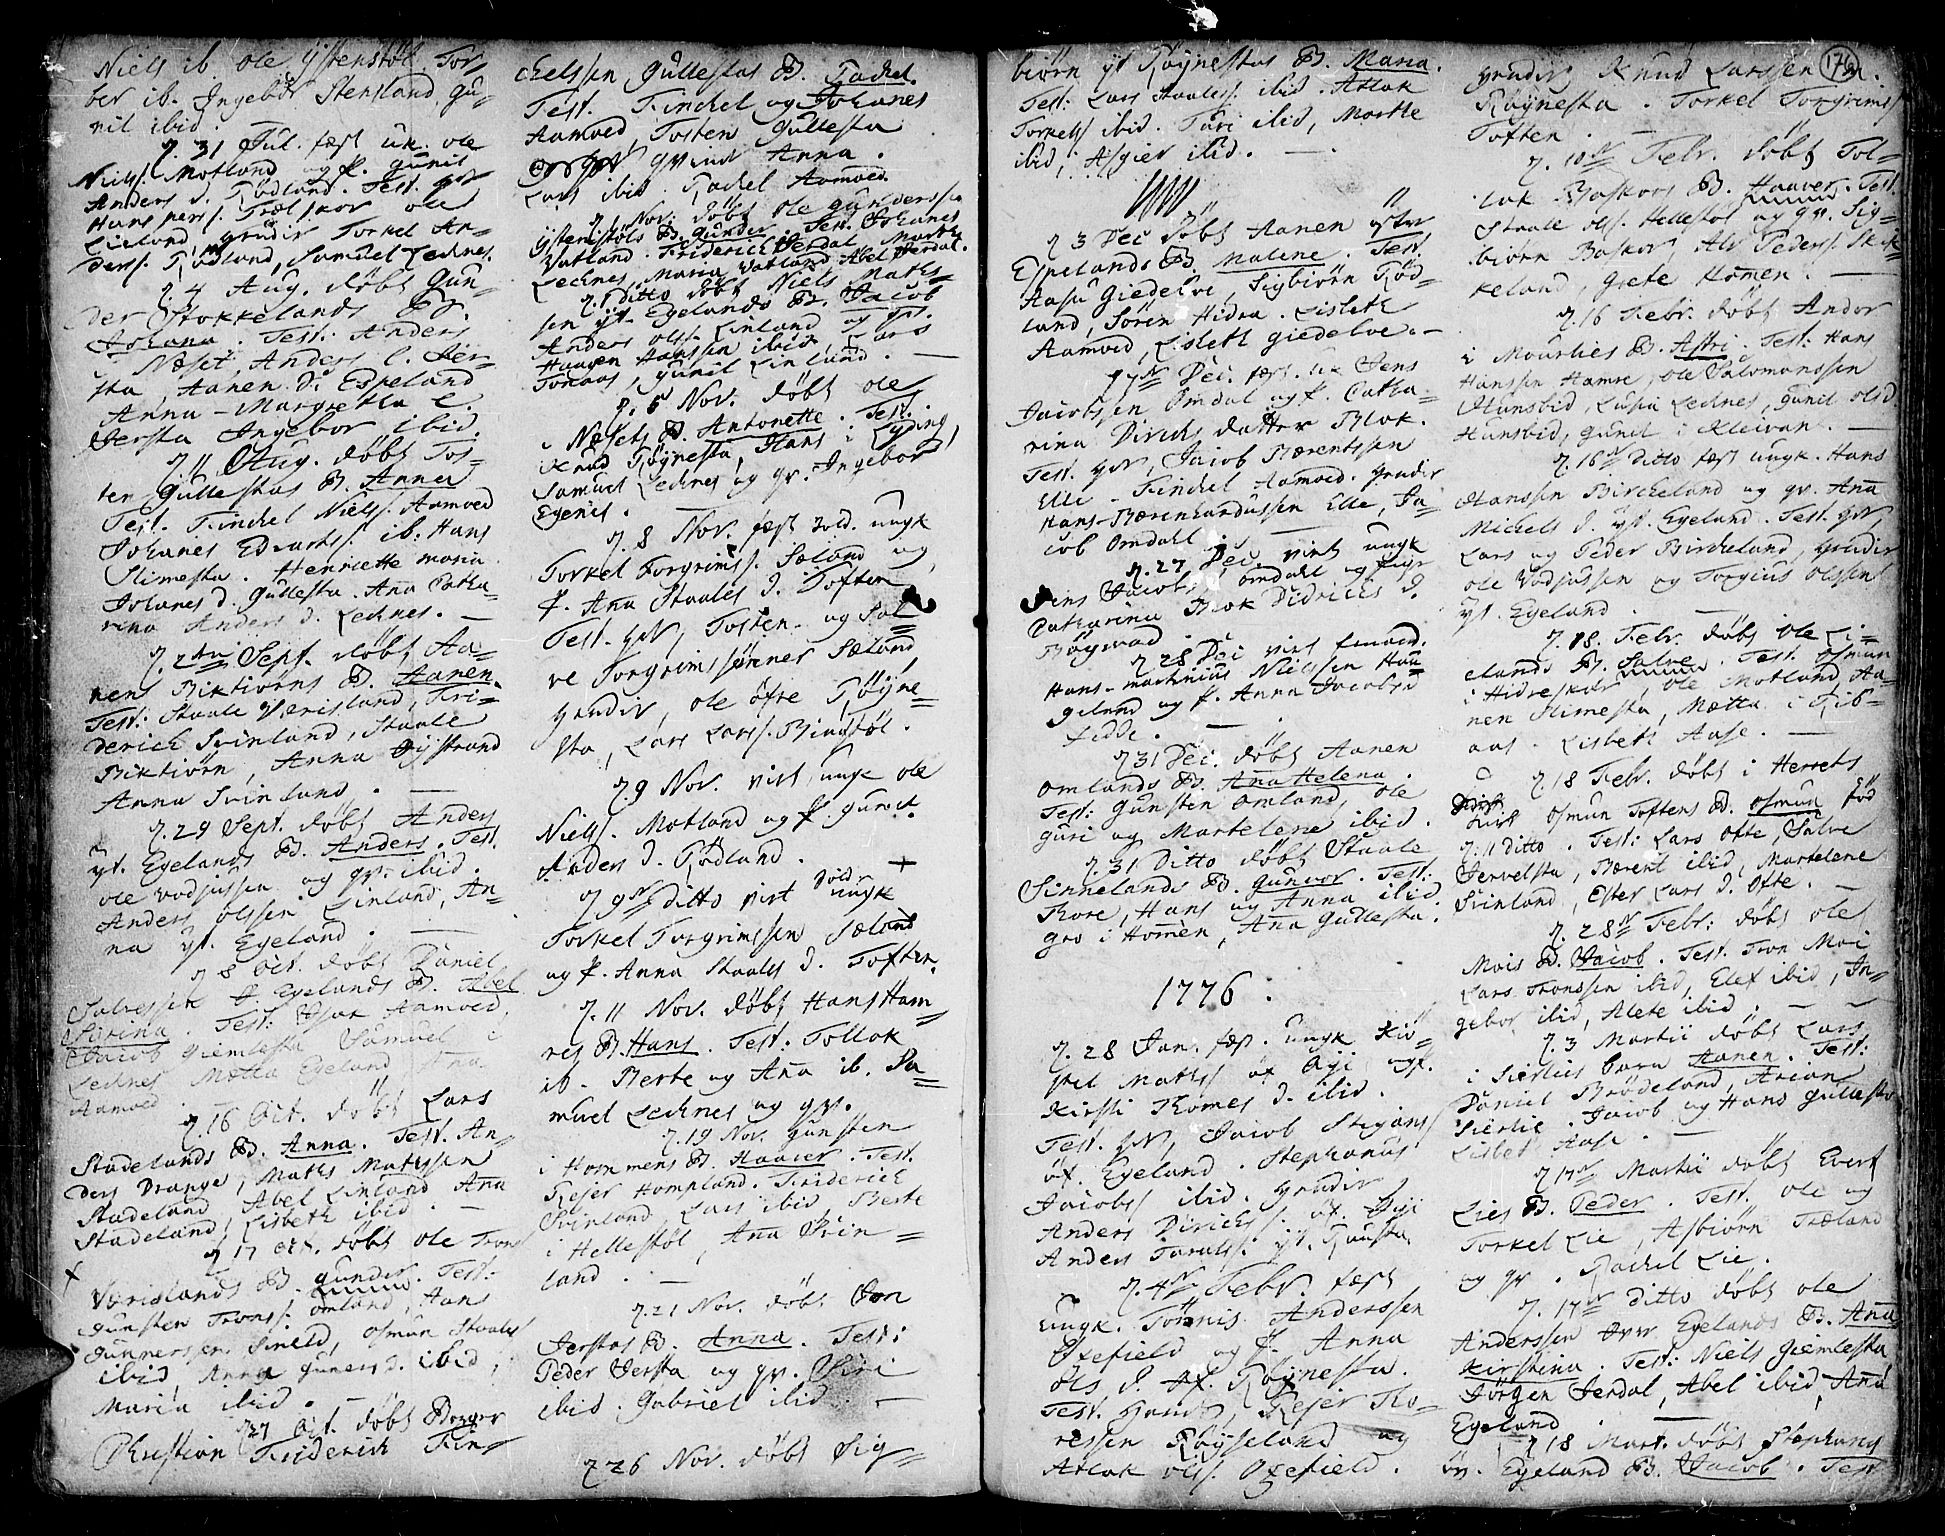 Niels ib. Ole Ystenstøl. Tor-
ber ib. Ingebor Stensland Gu-
nil ibid.
d. 31 Jul. fæst uk. Ole
Niels. Motland og P. Gunil
Anders d. Rødland. Test. gr.
Hans pers. Træl skor Ole
Lieland, Grudir Torkel An-
ders. Rødland, Samuel Lednes.
d. 4 Aug. døbt Gun-
der Stokkelands B.
Johana. Test: Anders
Næset, Anders l. Jer-
sta, Aanen di Espeland
Anna-Margretha l.
Versta Ingebor ibid.
d. 11 Aug. døbt Tos-
ten Gullestas B. Anna
Test. Finchel Niels. Aamoed
Johanes Edvarts. ib. Hans
Slimesta. Henriette maria
Johanes d. Gullesta. Ana Catha-
rina Anders d. Lednes.
d. 2 Sept. døbt Aa-
nens Biktiørns B. Aanen.
Test: Staale Værisland, Fri-
derich Svinland, Staale
Biktiørn, Anna Dystrand
Anna Svinland.
d. 29 Sept. døbt Anders
yt. Egelands B. Anders. Test.
Ole Vodjussen og gr. ibid.
Anders olssen Linland, An-
na yt. Egeland.
d. 8 Oct. døbt Daniel
Salvessen Egelands B. Abel
Serina. Test: Aamoed,
Jacob Giemlesta Samuel i
Lednes Mætta Egeland Ana
Aamoed
d. 16 Oct. døbt Lars
Stadelands B. Anna. Test. An-
ders Drange, Maths Mathssen
Stadeland Abel Linland Ana
Stadeland, Lisbeth ibid.
d. 17 Oct. døbt Ole Trons
Værislands B. Gunder. Test:
Gunsten Trons. Omland, Hans
Gunnerssen Sineld, Osmun Staales
ibid Anna Guners d. ibid,
Maria ibid.
d. 27 Oct. døbt Borger
Christian Friderich Fin-
chelssen Gullestas B. Rachel.
Test. Finchel og Johanes
Aamoed, Tosten Gullesta
gr. Qvinde Anna.
Lars ibid. Rachel Aamoed.
d. 1 Nov. døbt Ole Gunderssen
Ystenstøls B. Gunder. Test. Johanes
Vatland. Friderich Jerdal. Marthe
Lednes, Maria Vatland. Abel Jerdal.
d. 1 Ditto døbt Niels Maths-
sen yt. Egelands B. Jacob
Anders ols. Linland og gr.
Haagen Hanssen ibid, Lars
Tonaas, Gunil Linlund.
d. 6 Nov. døbt Ole
Næsets B. Antonette. Test.
Knud Røynesta, Hans i Ryding
Samuel Lednes og gr. Ingebor
Egenes.
d. 8 Nov. fæst Sold. ungk
Torkel Torgrims. Sæland og
P. Ana Staales d. Toften
Test. gr, Tosten og Sal-
ve Torgrimssønner Sæland
Grudir, Ole øfre Røyne-
sta, Lars Lars. Ringstøl.
d. 9 Nov. viet ungk Ole
Niels. Motland og P. Gunel.
Anders d. Rødland.
d. 9 Ditto viet Sold. ungk
Torkel Torgrimssen Sæland
og P. Anna Staales d. Toften.
d. 11 Nov. døbt Hans Ham-
res B. Hans. Test: Tollak
ib. Berte og Ana ib. Sa-
muel Lednes og gr.
d. 19 Nov. Gunsten
i Hommens B. Haaver. Test.
Rejer Hompland. Friderich
Svinland Lars ibid, Berte
i Hellestøl, Ana Svin-
land.
d. 21 Nov. døbt Jon
Jerstas B. Anna. Test:
Peder Versta og gr. Siri
ibid. Gabriel ibid.
d. 26 Nov. døbt Sig-
biørn yt Røynestas B. Maria.
Test: Lars Staales. ibid. Atlak
Torkels. ibid. Turi ibid, Marthe
ibid, Asgier ibid.
d. 3 Dec døbt Aanen øfter
Espelands B. Malene. Test
Aasu Giedelve, Sigbiørn Rød-
land, Søren Hidra. Lisbeth
Aamoed, Lisbeth Giedelve.
17 Dec. fæst. uk Jens
Jacobssen Omdal og P. Catha-
rina Dirchs datter Blok.
Test. gr, Jacob Berentssen
Elle-Finchel Aamoed. Grudir
Hans-Bærenhardussen Elle, Ja-
cob Omdal.
d. 27 Dec. viet ungk
Jens Jacobs. Omdahl og Pige
Catharina Blok Didrichs d.
Bøgvad
d. 28 Dec viet
Hans-mathias Nielssen Hau-
geland og P. Anna Jacobsd
Fedde.
d. 31 Dec. døbt Aanen
Omlands B. Ana Helena.
Test: Gunsten Omland, Ole
Guri og Martelene ibid.
d. 31 Ditto døbt Staale
Sinnelands B. Gunvor. Test:
Thore, Hans og Anna ibid.
Gro i Homen, Ana Gullesta.
1776.
d. 28 Jan. fæst. ungk Ki-
stel Maths. øf. Øyi og P.
Kirsti Thomes d. ibid.
Test. gr, Jacob Stephans.
øf. Egeland. Stephanus
Jacobs. ibid. Grudir,
Anders Dirichs. øf. Øyi
Anders Tarals. yt. Raasta.
d. 4 Febr. fæst
ungk. Tønnis Anderssen
Oxefield og P. Anna
Ols d. øf. Røynesta.
Test. Rejer Tho-
ressen Røyseland og
Atlak Ols. Oxefield.
176
Grudir Knud Larssen
Røynesta. Torkel Torgrims
Toften.
d. 10 Febr. døbt Tol-
lak Baskors B. Haaver. Test.
Staale ols. Hellestøl og gr. Sig-
biørn Baskor, Alv Peders. Sk
keland, Grete Homen.
d. 16 Febr. døbt Andor
i Mourlies B. Astri. Test: Hans
Hanssen Hamre, Ole Salomonssen
Hunsbid, Lusia Lednes, Gunil olsd
Hunsbid, Gunil i Kleivan.
d. 16 Ditto fæst ungk. Hans
Hanssen Bircheland og gr. Ana
Michels d. yt. Egeland. Test. gr,
Lars og Peder Bircheland, Grudir
Ole Vodjussen og Torgius Olssen
yt. Egeland.
d. 18. Febr. døbt Ole Li-
elands B. Salve. Test. Osmun
i Hidreskor, Ole Motland, Aa-
nen Slimesta, Mætta i Rib-
aas. Lisbeth Aase.
d. 18 Febr. døbt i Herrets
Kirk Osmun Toftens B. Osmun fød
d. 11 Ditto. Test: Lars Ofte, Salve
Jervelsta, Bærent ibid, Martelene
Svinland, Ester Lars d. Ofte.
d. 28 Febr: døbt Ole
Mois B. Jacob. Test. Tron Moi
Lars Tronssen ibid, Elef ibid, In-
gebor ibid, Alete ibid.
d. 3 Martii døbt Lars
i Sierlies barn Aanen. Test:
Daniel Brødeland, Arian
Sierlie. Jacob og Hans Gullesta
Lisbet Aase.
d. 17 Martii døbt Evert
Lies B. Peder. Test. Ole og
Torkel Lie, Asbiørn Træland
og gr. Rachel Lie.
d. 17 Ditto døbt Ole
Anderssen øvr Egelands B. Ana
Kirstina. Test: Niels Giemlesta
Jørgen Jerdal, Abel ibid, Ana
Egeland
d. 18 Mart. døbt Stephanus
øv. Egeland B. Jacob. Test